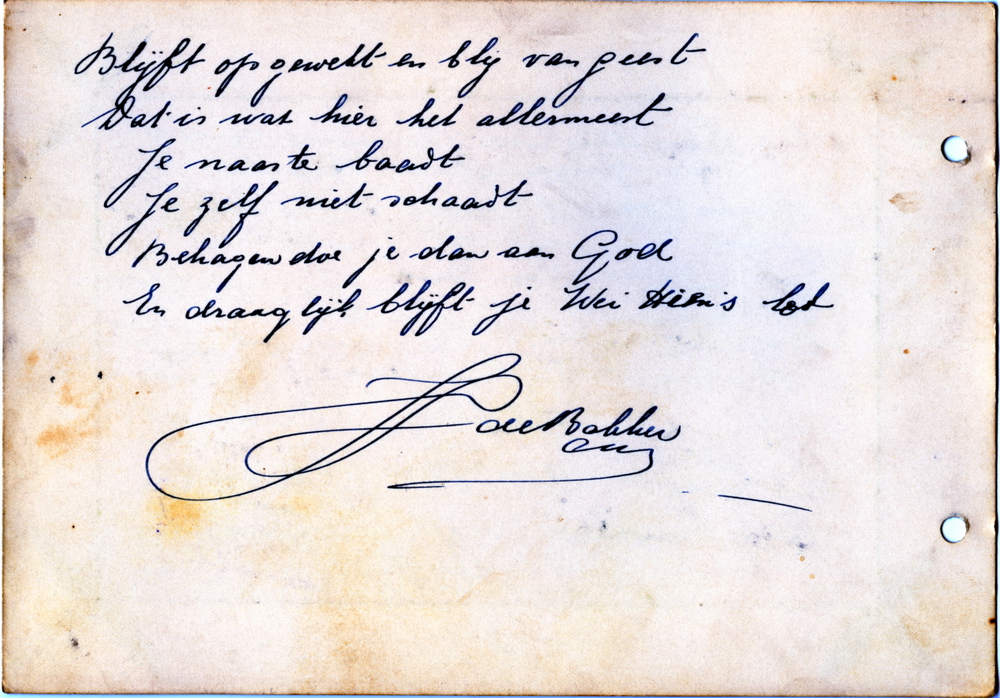 Blijft opgewekt en blij van geest
Dat is wat hier het allermeest
Je naaste baadt
Je zelf niet schaadt
Behagen doe je dan aan God
En draaglijk blijft je Wei Hien's lot
de Bakker